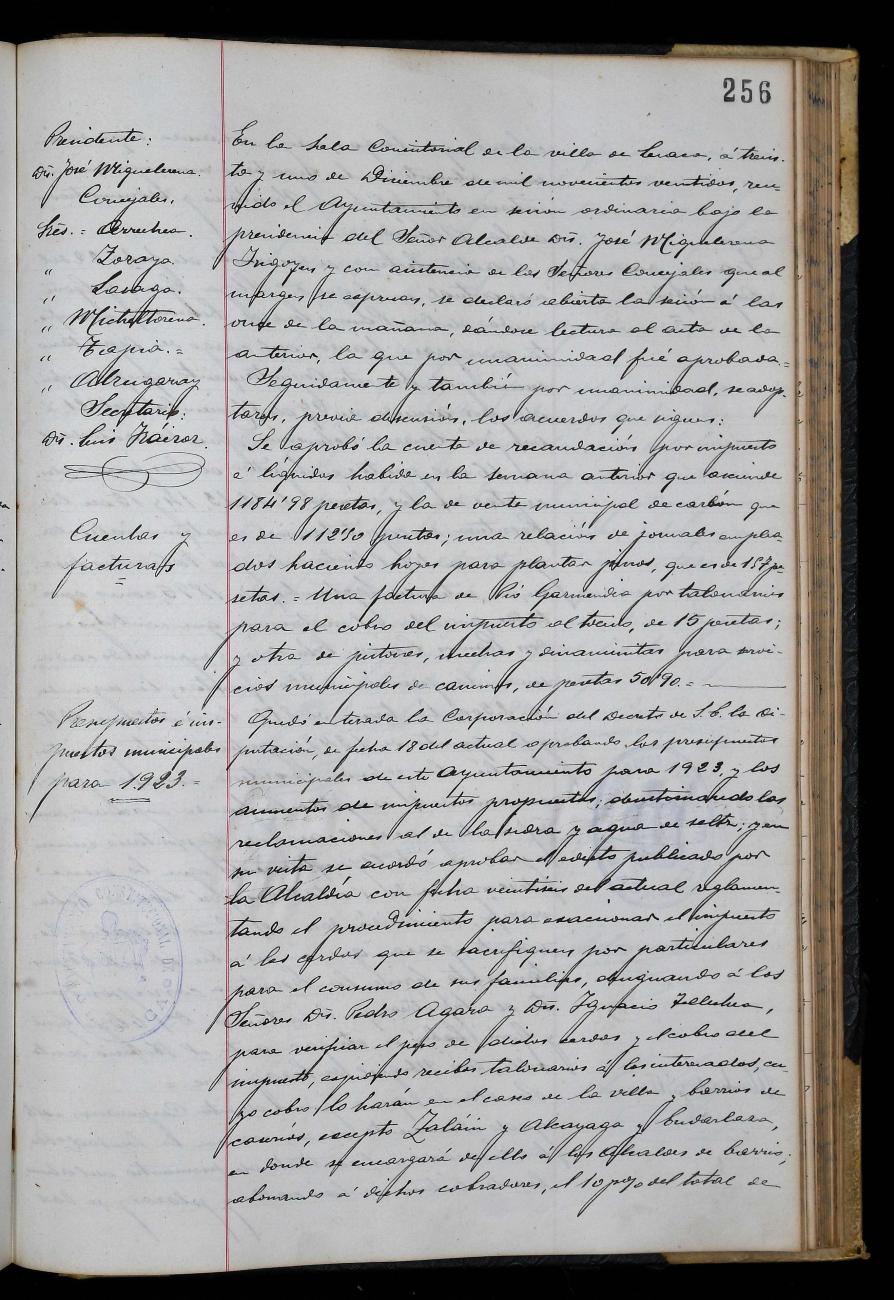 256
Presidente:
Dn. José Miguelerena.
Concejales.
Sres. = Arrechea.
" Zoraya.
" Lasaga.
" Micheltorena.
" Tapia. =
" Alzugaray
Secretario:
Dn. Luis
Cuentas y
facturas
=
Presupuestos é im-
puestos municipales
para 1.923. =
En la Sala Consistorial de la villa de Lesaca, á trein-
ta y uno de Diciembre de mil novecientos veintidos, reu-
nido el Ayuntamiento en sesión ordinaria bajo la
presidencia del Señor Alcalde Dn. José Miguelerena
Irigoyen y con asistencia de los Señores Concejales que al
margen se expresan, se declaró abierta la sesión á las
once de la mañana, dándose lectura al acta de la
anterior, la que por unanimidad fué aprobada. =
Seguidamente y también por unanimidad, se adop-
taron, previa discusión, los acuerdos que siguen:
Se aprobó la cuenta de recaudación por impuesto
á líquidos habida en la semana anterior que asciende
1184'98 pesetas, y la de venta municipal de carbón que
es de 112'50 pesetas; una relación de jornales emplea-
dos haciendo hoyos para plantar pinos, que es de 157 pe-
setas. = Una factura de Pió Garmendia por talonarios
para el cobro del impuesto al tocino, de 15 pesetas;
y otra de pistones, mechas y dinamitas para servi-
cios municipales de caminos, de pesetas 50'90. =
Quedó enterada la Corporación del Decreto de S.E. la Di-
putación, de fecha 18 del actual aprobando los presupuestos
municipales de este Ayuntamiento para 1923, y los
aumentos de impuestos propuestos; desestimando las
reclamaciones al de la sidra y agua de seltz; y en
su vista se acordó aprobar el edicto publicado por
la Alcaldía con fecha veintiseis del actual reglamen-
tando el procedimiento para exaccionar el impuesto
á los cerdos que se sacrifiquen por particulares
para el consumo de sus familias, designando á los
Señores Dn. Pedro Agara y Dn. Ignacio Tellechea,
para verificar el peso de dichos cerdos y el cobro del
impuesto, expidiendo recibos talonarios á los interesados, cu-
yo cobro lo harán en el casco de la villa y barrios de
caseríos, excepto Zaláin y Alcayaga y Endarlaza,
en donde se encargará de ello á los Alcaldes de barrio;
abonando á dichos cobradores, el 10 p% del total de